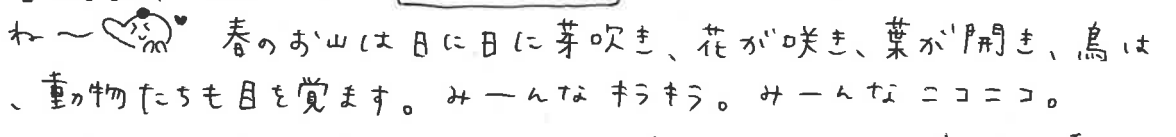 ね〜 春のお山は日に日に芽吹き、花が咲き、葉が開き、鳥は
、動物たちも目を覚ます。みーんなキラキラ。みーんなニコニコ。